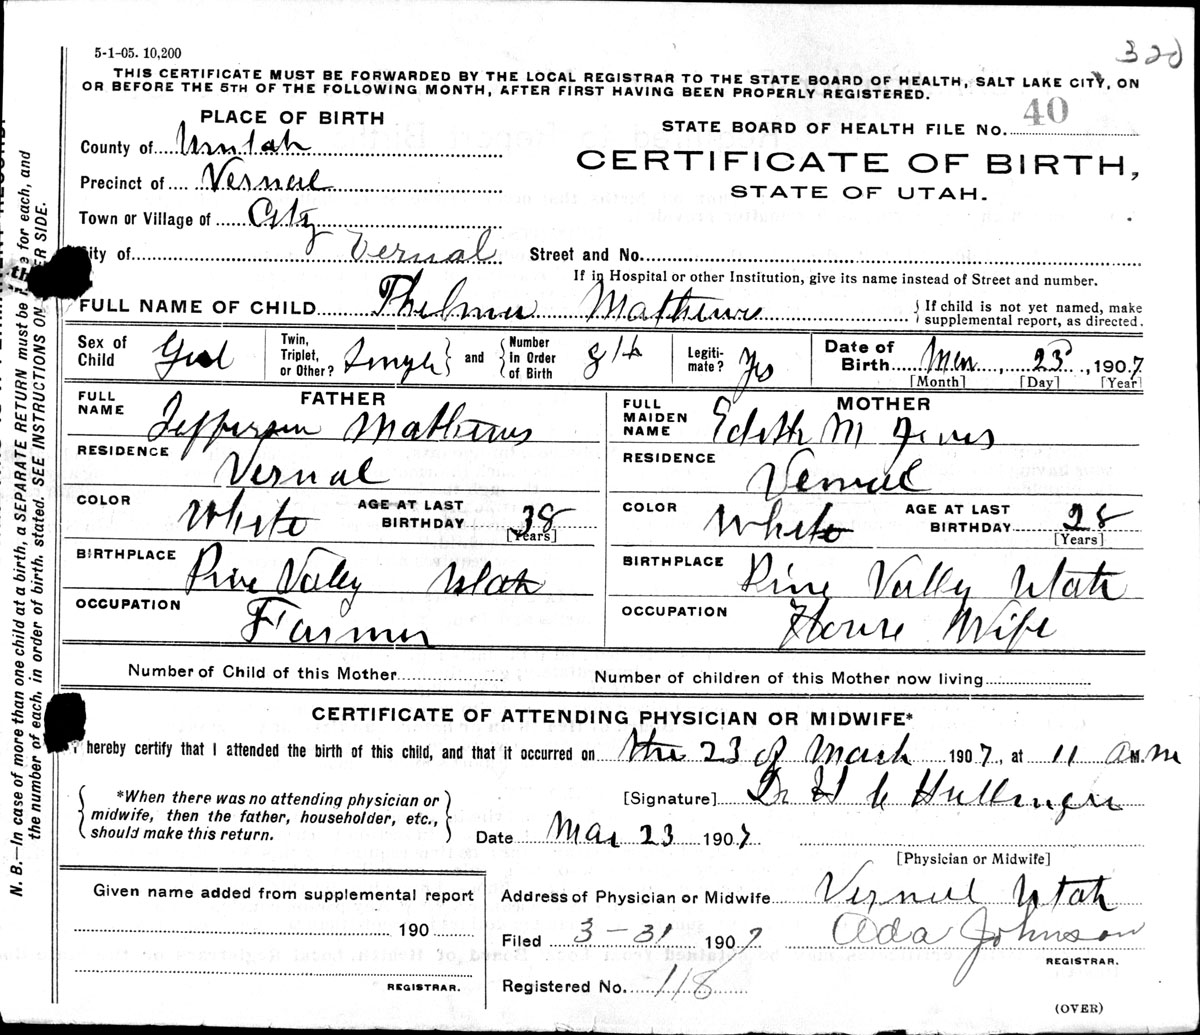 5-1-05. 10,200
320
THIS CERTIFICATE MUST BE FORWARDED BY THE LOCAL REGISTRAR TO THE STATE BOARD OF HEALTH, SALT LAKE CITY, ON
OR BEFORE THE 5TH OF THE FOLLOWING MONTH, AFTER FIRST HAVING BEEN PROPERLY REGISTERED.
PLACE OF BIRTH
STATE BOARD OF HEALTH FILE No. 40
County of Uintah
CERTIFICATE OF BIRTH,
Precinct of Vernal
STATE OF UTAH.
Town or Village of City
City of Vernal Street and No.
If in Hospital or other Institution, give its name instead of Street and number.
FULL NAME OF CHILD Thelma Mathews { If child is not yet named, make supplemental report, as directed.
Sex of Child Girl Twin, Triplet, or Other? Single } and { Number in Order of Birth 8th Legitimate? Yes Date of Birth Mar, 23, 1907
[Month] [Day] [Year]
FATHER MOTHER
FULL NAME Jefferson Mathews FULL MAIDEN NAME Edith M
RESIDENCE Vernal RESIDENCE Vernal
COLOR White AGE AT LAST BIRTHDAY 38 [Years] COLOR White AGE AT LAST BIRTHDAY 28 [Years]
BIRTHPLACE Pine Valley Utah BIRTHPLACE Pine Vally Utah
OCCUPATION Farmer OCCUPATION House Wife
Number of Child of this Mother Number of children of this Mother now living
CERTIFICATE OF ATTENDING PHYSICIAN OR MIDWIFE*
I hereby certify that I attended the birth of this child, and that it occurred on the 23 of March 1907, at 11 a M. m
*When there was no attending physician or midwife, then the father, householder, etc., should make this return.
[Signature] Dr H C Hullinger
Date Mar 23 1907
[Physician or Midwife]
Given name added from supplemental report
Address of Physician or Midwife Vernal Utah
190
Filed 3-31 1907 Ada Johnson
REGISTRAR.
REGISTRAR.
Registered No. 118
(OVER)
N. B.—In case of more than one child at a birth, a SEPARATE RETURN must be for each, and
the number of each, in order of birth, stated. SEE INSTRUCTIONS ON SIDE.